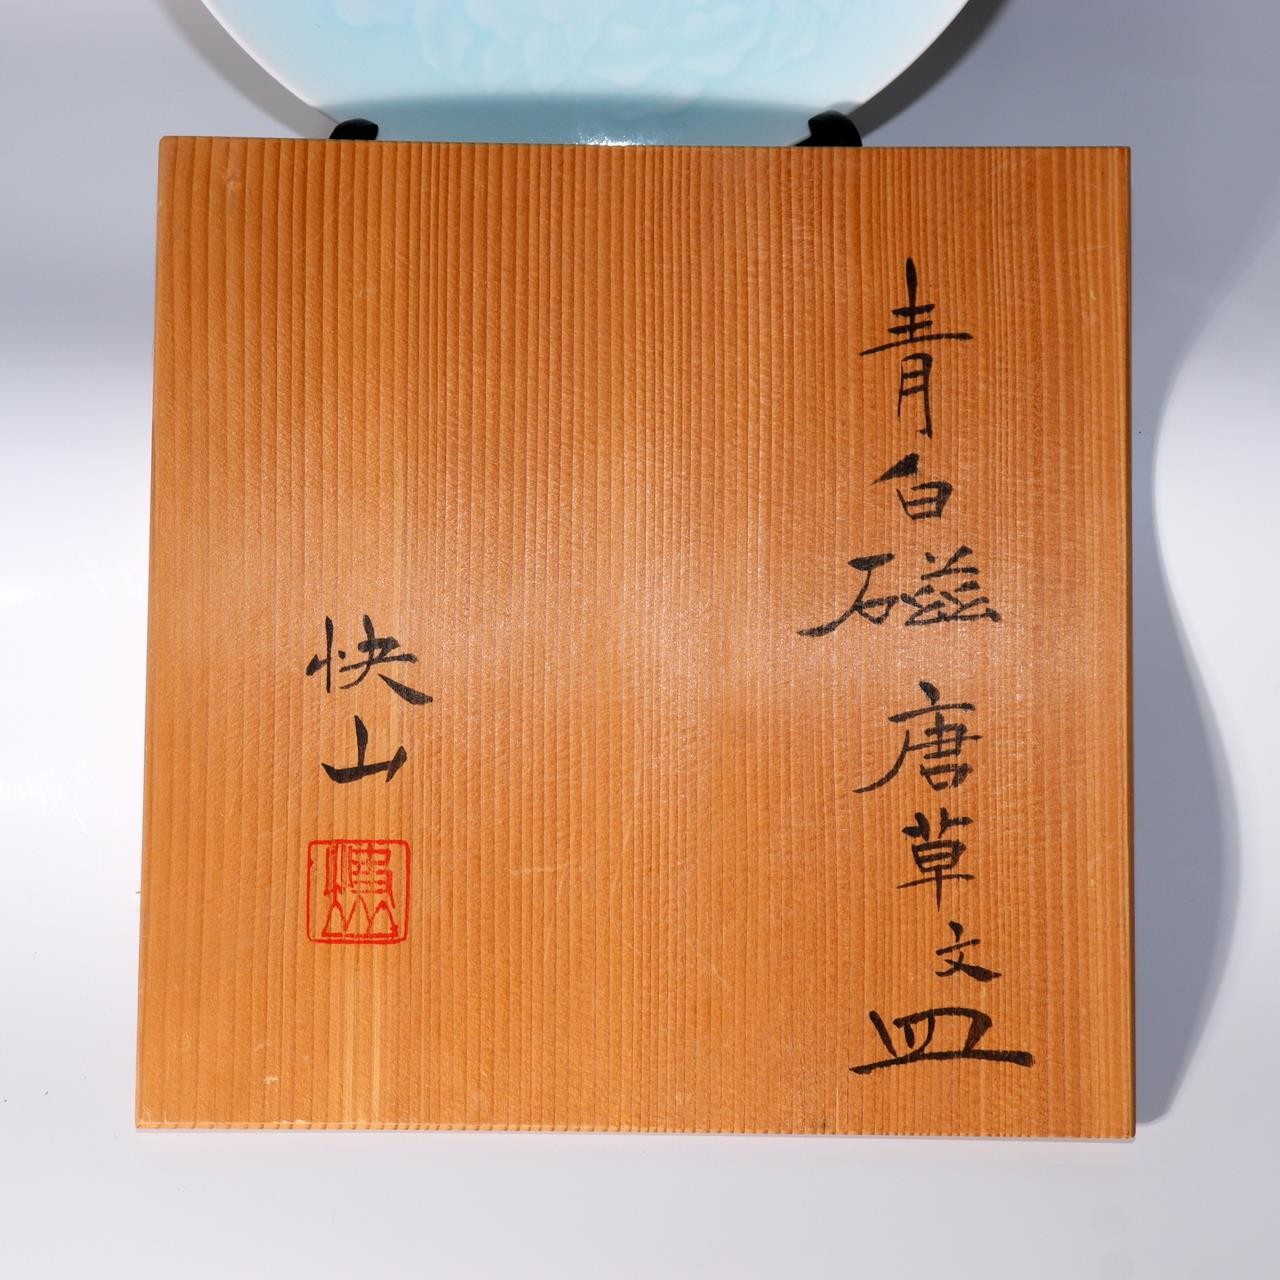 青白磁 唐草文皿
快山